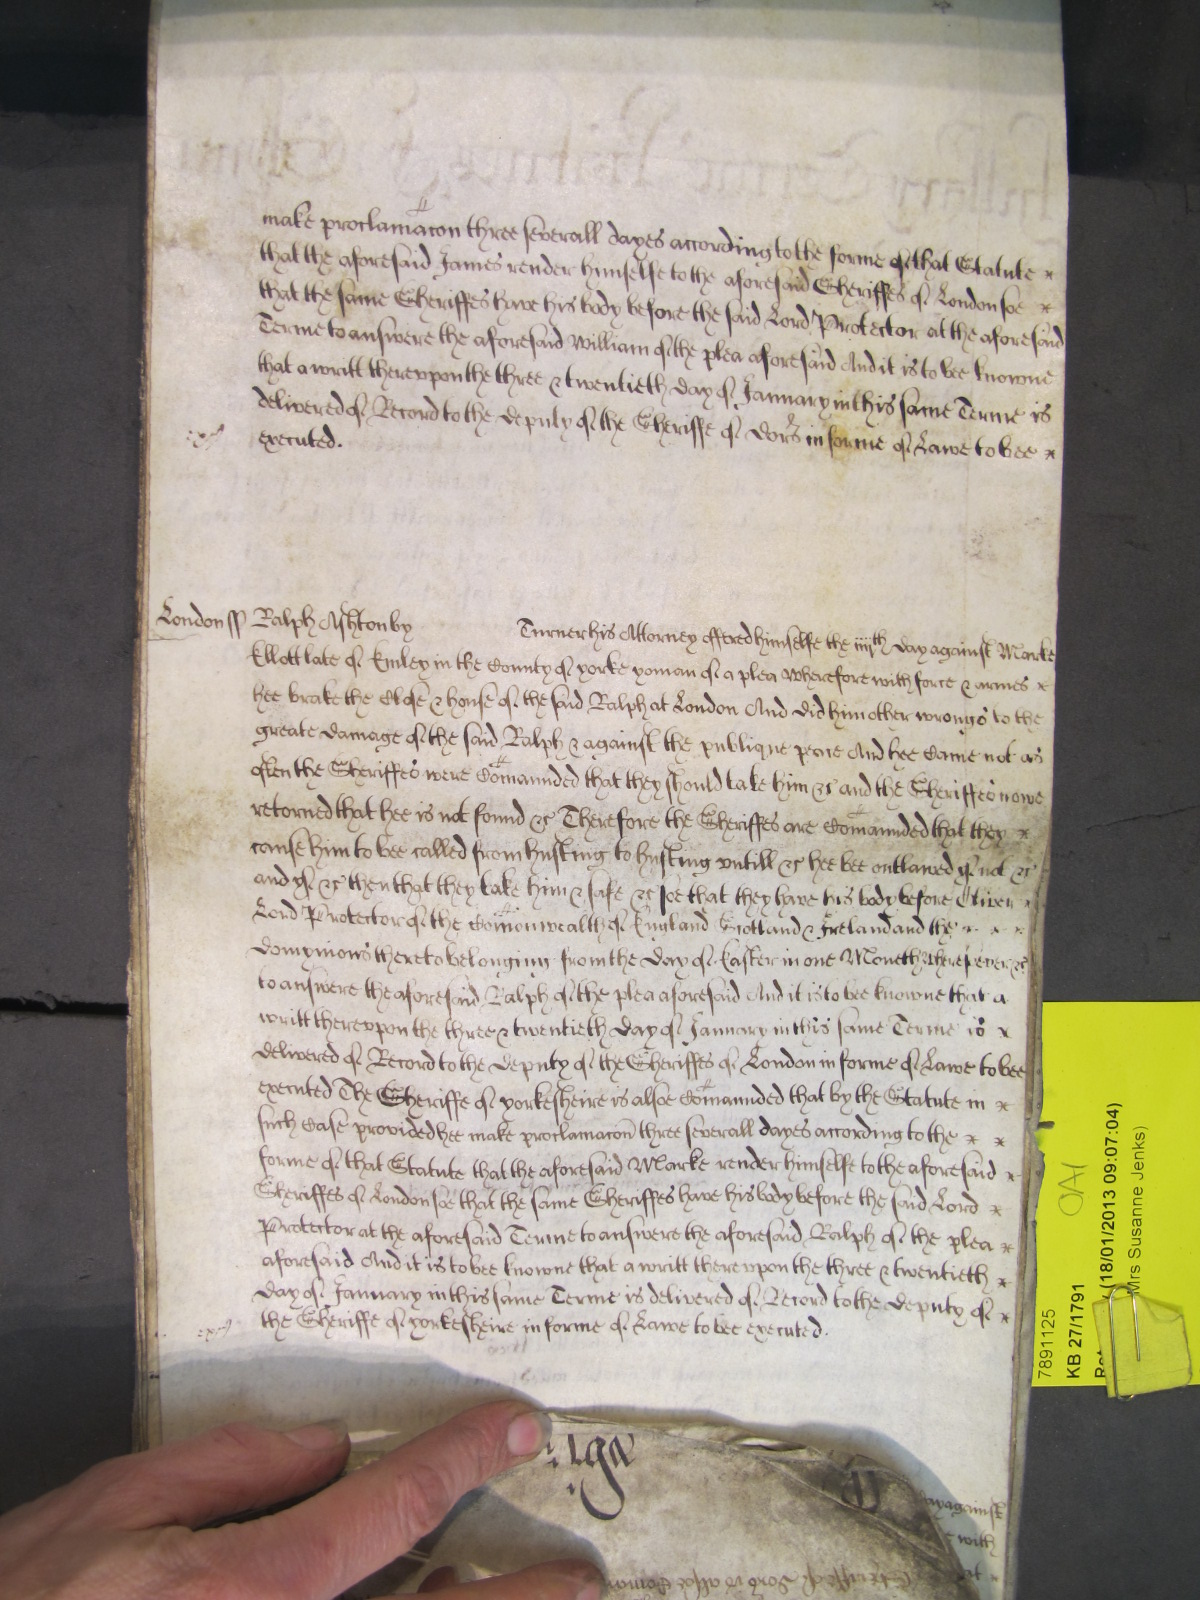 make proclamacon three severall dayes according to the forme of that Statute
that the aforesaid James render himselfe to the aforesaid Sheriffes of London soe
that the same Sheriffes have his body before the said Lord Protector at the aforesaid
Terme to answere the aforesaid William of the plea aforesaid And it is to bee knowne
that a writt therevpon the three & twentieth day of January in this same Terme is
delivered of Record to the deputy of the Sheriffe of Dors in forme of Lawe to bee
executed.
London ss Ralph Ashton by Turner his Attorney offered himselfe the iiijth day against Marke
Ellott late of Emley in the County of yorke yoman of a plea Wherefore with force & armes
hee brake the Close & house of the said Ralph at London And did him other wrongs to the
greate damage of the said Ralph & against the publique peace And hee Came not as
often the Sheriffes were Comaunded that they should take him &c and the Sheriffes nowe
retorned that hee is not found &c Therefore the Sheriffes are Comaunded that they
cause him to bee called from husting to husting untill &c hee bee outlawed if not &c
and if &c then that they take him & safe &c soe that they have his body before Oliver
Lord Protector of the Comonwealth of England Scotland & Ireland and the
Dominions thereto belonging from the day of Easter in one Moneth wheresoever &c
to answere the aforesaid Ralph of the plea aforesaid And it is to bee knowne that a
writt therevpon the three & twentieth day of January in this same Terme is
delivered of Record to the deputy of the Sheriffes of London in forme of Lawe to bee
executed The Sheriffe of yorkesheire is alsoe Comaunded that by the Statute in
such Case provided hee make proclamacon three severall dayes according to the
forme of that Statute that the aforesaid Marke render himselfe to the aforesaid
Sheriffes of London soe that the same Sheriffes have his body before the said Lord
Protector at the aforesaid Terme to answere the aforesaid Ralph of the plea
aforesaid And it is to bee knowne that a writt therevpon the three & twentieth
day of January in this same Terme is delivered of Record to the deputy of
the Sheriffe of yorkesheire in forme of Lawe to bee executed.
day against
with
at
7891125
KB 27/1791
(18/01/2013 09:07:04)
Mrs Susanne Jenks)